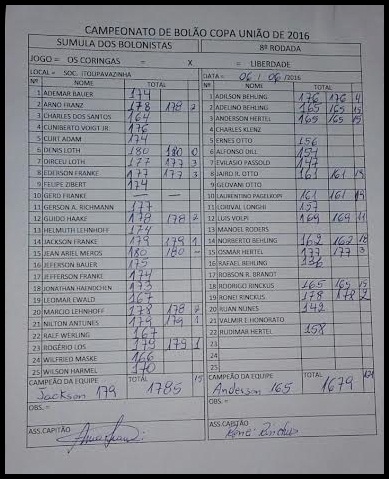 CAMPEONATO DE BOLÃO COPA UNIÃO DE 2016
SUMULA DOS BOLONISTAS 8ª RODADA
JOGO = OS CORINGAS = X = LIBERDADE
LOCAL = SOC. ITOUPAVAZINHA
Nº NOME TOTAL
1 ADEMAR BAUER 174
2 ARNO FRANZ 178 178 2
3 CHARLES DOS SANTOS 164
4 CUNIBERTO VOIGT JR 176
5 CURT ADAM 174
6 DENIS LOTH 180 180 0
7 DIRCEU LOTH 177 177 3
8 EDERSON FRANKE 177 177 3
9 FELIPE ZIBERT 174
10 GERD FRANKE —
11 GERSON A. RICHMANN 177
12 GUIDO HAAKE 178 178 2
13 HELMUTH LEHNHOFF 174
14 JACKSON FRANKE 179 179 1
15 JEAN ARIEL MEROS 180 180 —
16 JEFERSON BAUER 175
17 JEFFERSON FRANKE 174
18 JONATHAN HAENDCHEN 173
19 LEOMAR EWALD 167
20 MARCIO LEHNHOFF 178 178 2
21 NILTON ANTUNES 179 179 1
22 RALF WERLING 167
23 ROGÉRIO LOS 179 179 1
24 WILFRIED MASKE 166
25 WILSON HARMEL 170
CAMPEÃO DA EQUIPE TOTAL 15
Jackson 179 1785
OBS. =
ASS.CAPITÃO
DATA = 06 / 06 /2016
Nº NOME TOTAL
1 ADILSON BEHLING 176 176 4
2 ADELINO BEHLING 165 165 15
3 ANDERSON HERTEL 165 165 15
4 CHARLES KLENZ
5 ERNES OTTO 156
6 ALFONSO DILL 154
7 EVILASIO PASSOLD 147
8 JAIRO R. OTTO 161 161 19
9 GEOVANI OTTO
10 LAURENTINO PAGELKOPF 161 161 19
11 LORIVAL LONGHI 157
12 LUIS VOLPI 169 169 11
13 MANOEL RODERS
14 NORBERTO BEHLING 162 162 18
15 OSMAR HERTEL 177 177 3
16 RAFAEL BEHLING 136
17 ROBSON R. BRANDT
18 RODRIGO RINCKUS 165 165 15
19 RONEI RINCKUS 178 178 2
20 RUAN NUNES 142
21 VALMIR E HONORATO
22 RUDIMAR HERTEL 158
23
24
25
CAMPEÃO DA EQUIPE TOTAL
Anderson 165 1679
OBS. =
ASS.CAPITÃO
Ronei Rinckus